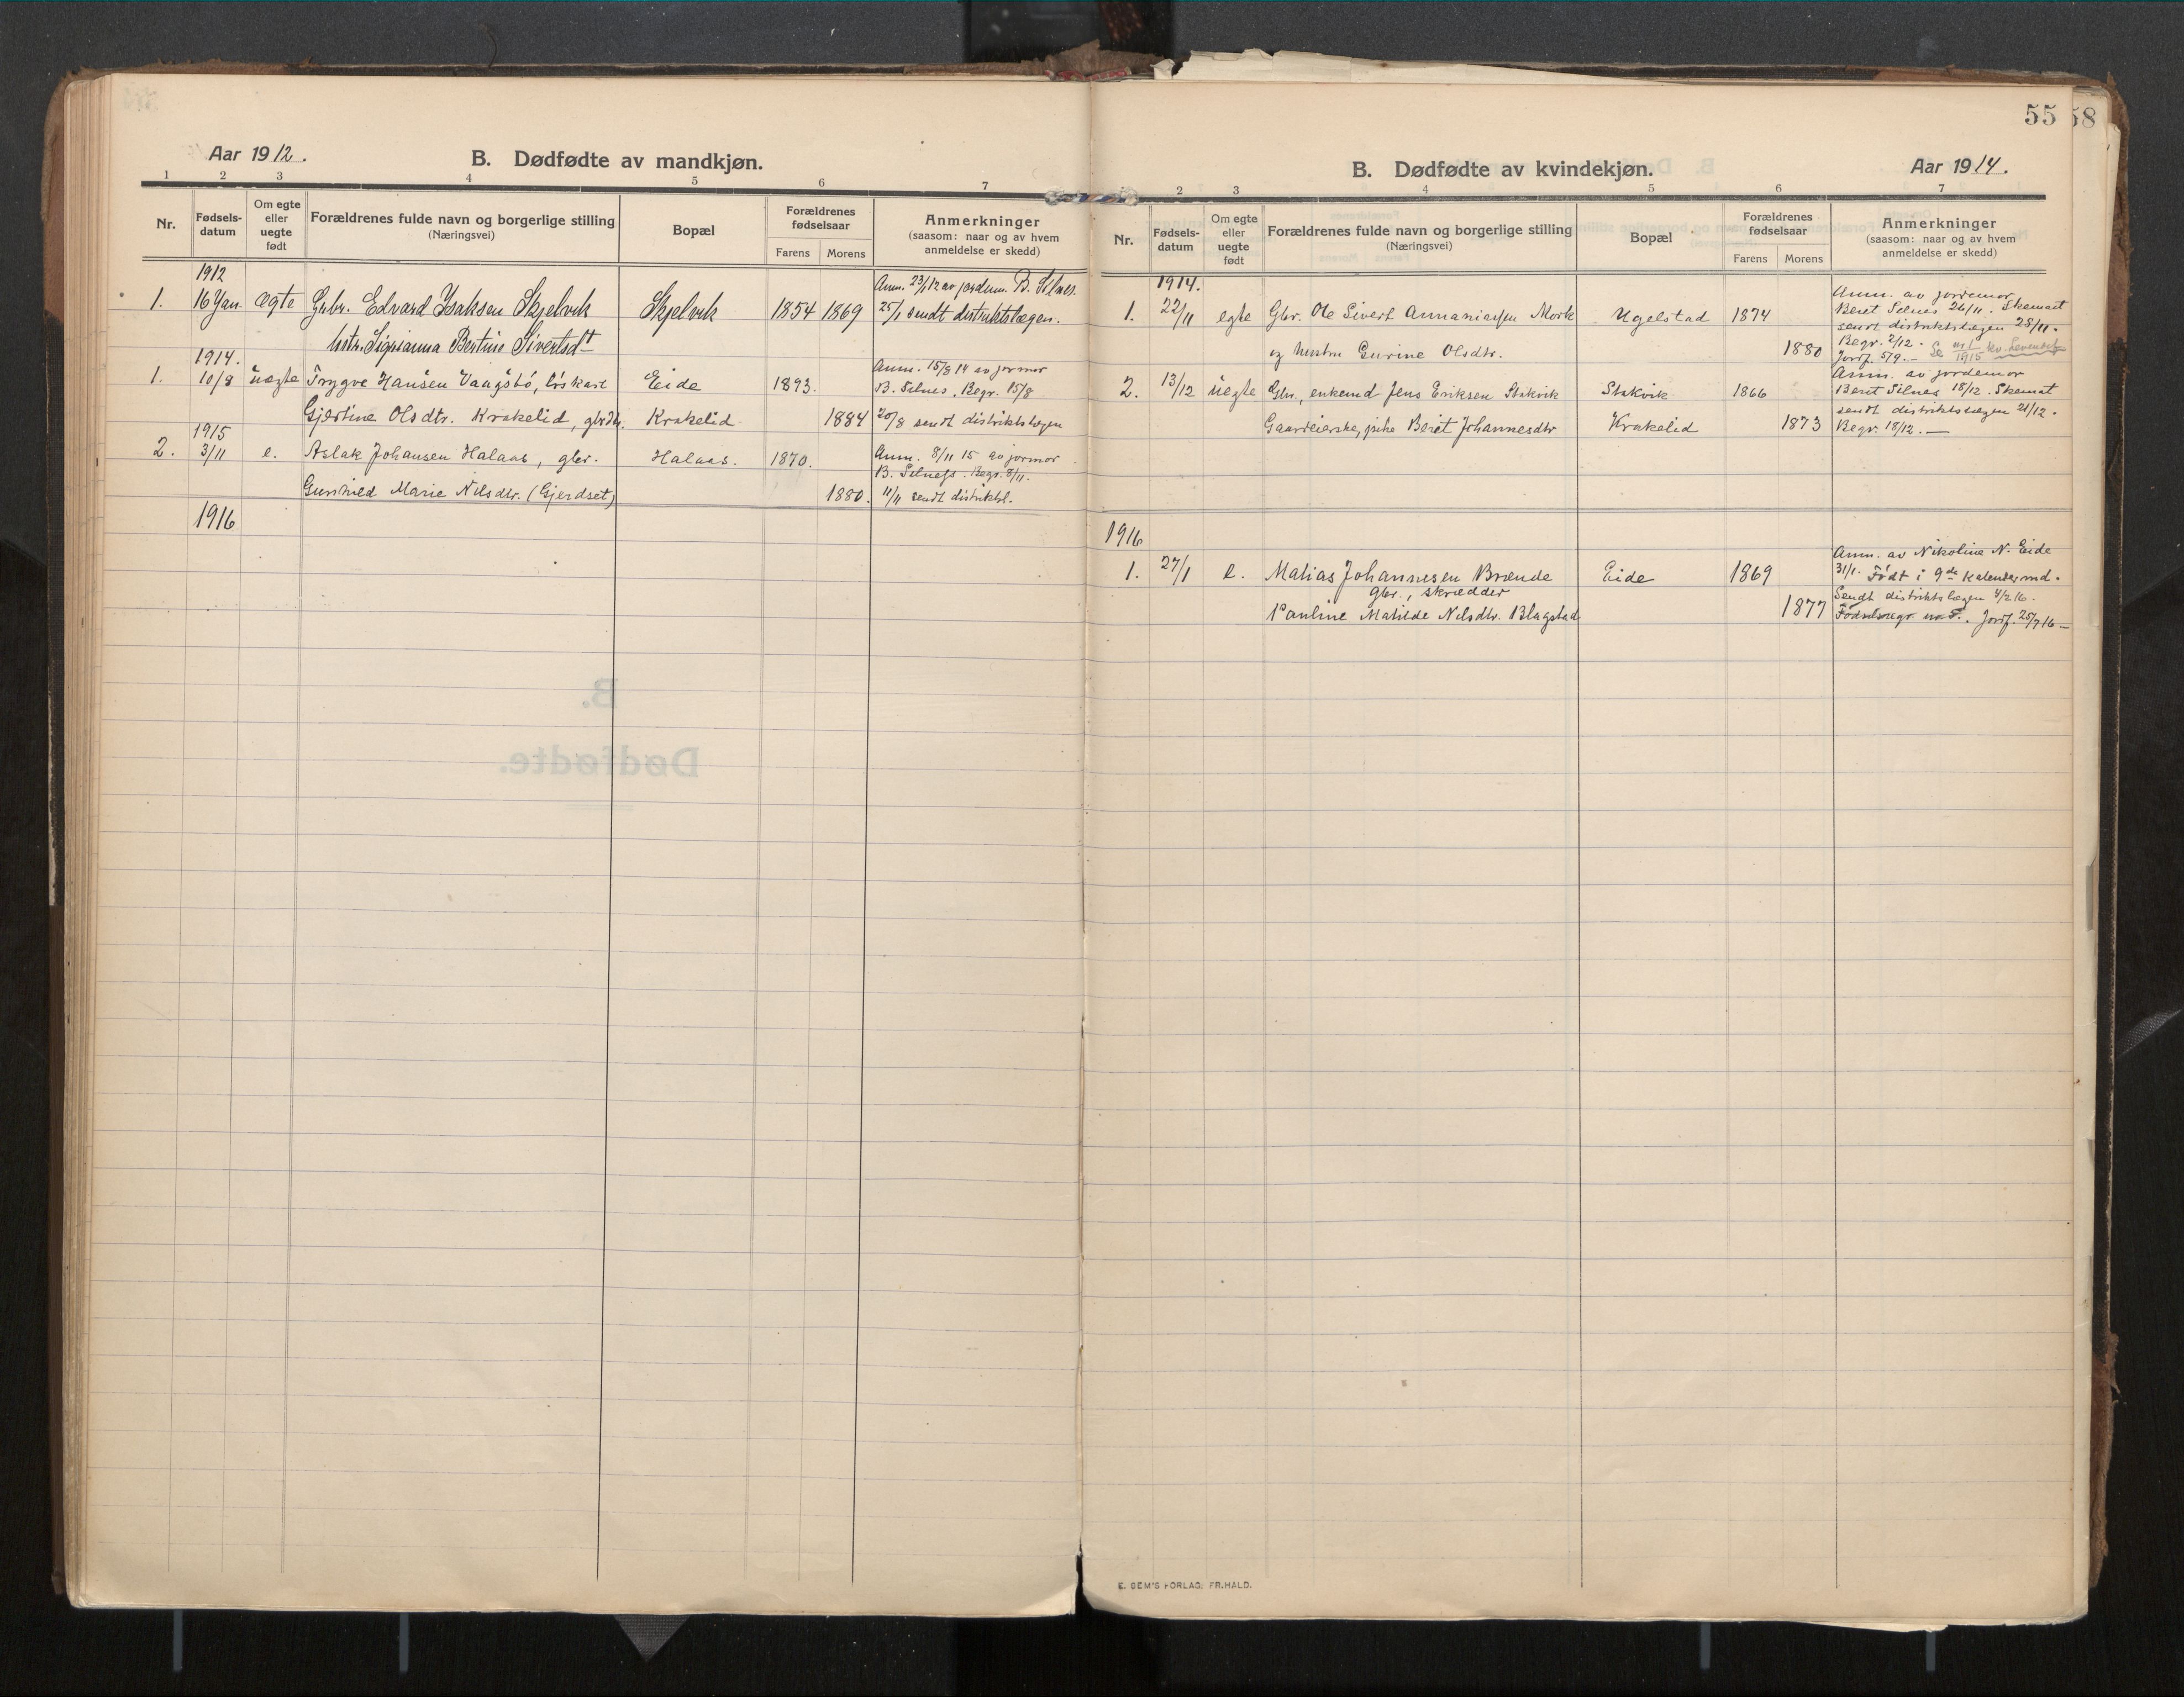 Aar 1912.
B. Dødfødte av mandkjøn.
1 2 3 4 5 6 7
Nr. Fødsels-datum Om egte eller uegte født Forældrenes fulde navn og borgerlige stilling (Næringsvei) Bopæl Forældrenes fødselsaar Farens Morens Anmerkninger (saasom: naar og av hvem anmeldelse er skedd)
1912 Anm. 23/1 12 av jordem. B. Silnes.
1. 16 Jan. Ægte Gbr. Edvard Isaksen Skjelvik Skjelvik 1854 1869 25/1 sendt distriktslægen.
hstr. Bertine Sivertsdt
1914. Anm. 15/8 14 av jormor
1. 10/8 uegte Trygve Hansen Vaagsbö, Eide 1893. B. Silnes. Begr. 15/8
Gjertine Olsdtr. Krakelid, gbrdtr. Krakelid 1884 20/8 sendt distriktslægen
1915
2. 3/11 e. Aslak Johansen Halaas, gbr. Halaas. 1870. Anm. 8/11 15 av jormor
B. Silness. Begr. 8/11.
Gunhild Marie Nilsdtr. (Gjerdset) 1880. 11/11 sendt distriktsl.
1916
55
58
B. Dødfødte av kvindekjøn.
Aar 1914.
2 3 4 5 6 7
Nr. Fødsels-datum Om egte eller uegte født Forældrenes fulde navn og borgerlige stilling (Næringsvei) Bopæl Forældrenes fødselsaar Farens Morens Anmerkninger (saasom: naar og av hvem anmeldelse er skedd)
1914. Anm. av jordemor
1. 22/11 egte Gbr. Ole Sivert Annaniassen Mork Ugelstad 1874 Beret Silnes 26/11. Skemaet
sendt distriktslægen 28/11.
og hustru Gurine Olsdtr. 1880 Begr. 2/12.
Jordf. 5/9. – Se 1915 kv. Levendef.
Anm. av jordemor
2. 13/12 uegte Gbr., enkemd Jens Eriksen Stakvik Stakvik 1866 Beret Silnes 18/12. Skemat
sendt distriktslægen 21/12.
Gaardeierske, pike Berit Johannesdtr Krakelid 1873 Begr. 18/12. —
1916
Anm. av Nikoline N. Eide
1. 27/1 e. Matias Johannesen Brænde Eide 1869 31/1. Födt i 9de kalendermd.
gbr., skrædder
Sendt distriktslægen 4/2 16.
Pauline Matilde Nilsdtr. Blagstad 1877 Jordf. 25/7 16 –
B.
Dødfødte.
E. SEM'S FORLAG, FR.HALD.